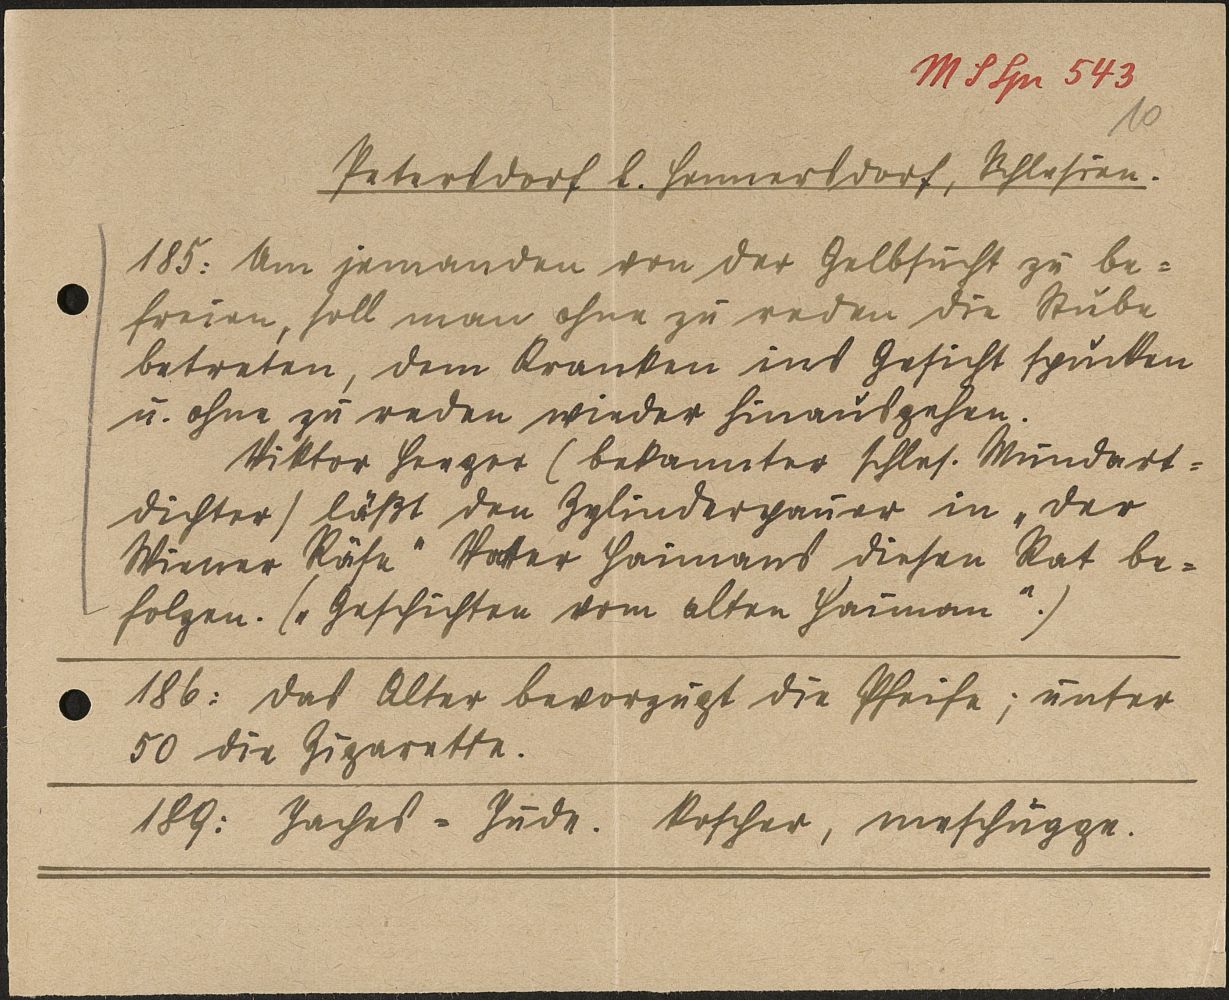 M S Spr 543
10
Petersdorf b. Hennersdorf, Schlesien.
185: Um jemanden von der Gelbsucht zu be=
freien, soll man ohne zu reden die Stube
betreten, dem Kranken ins Gesicht spucken
u. ohne zu reden wieder hinausgehen.
Viktor Heeger (bekannter schles. Mundart=
dichter) läßt den Zylinderpauer in „Der
Wiener Räse" Vatter Haimans diesen Rat be=
folgen. („Geschichten vom alten Haiman".)
186: Das Alter bevorzugt die Pfeife; unter
50 die Zigarette.
189: Jaches = Jude. Koscher, meschugge.